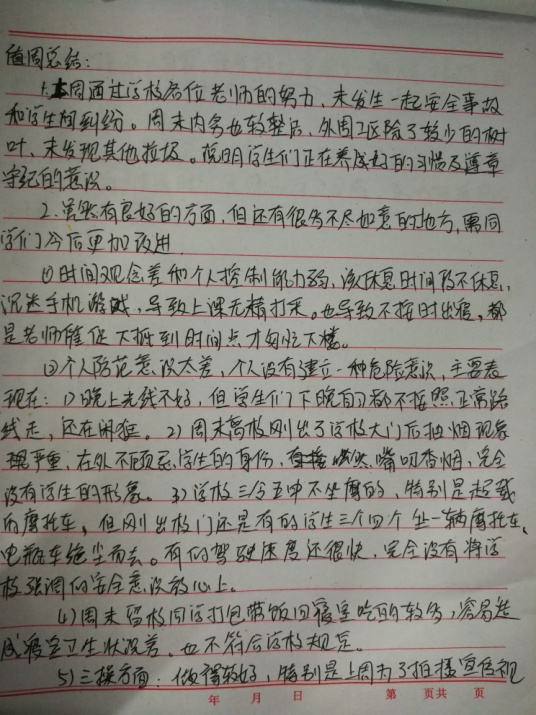 值周总结：
1.本周通过学校各位老师的努力，未发生一起安全事故
和学生间纠纷。周末内务也较整洁，外周卫区除了较少的树
叶、未发现其他垃圾。说明学生们正在养成好的习惯及遵章
守纪的意识。
2.虽然有良好的方面，但还有很多不尽如意的地方，需同
学们今后更加改进
①时间观念差和个人控制能力弱，该休息时间段不休息，
沉迷手机游戏，导致上课无精打采。也导致不按时出寝，都
是老师催促大抵到时间点才匆忙下楼。
②个人防范意识太差，个人没有建立一种危险意识，主要表
现在：1)晚上光线不好，但学生们下晚自习都不按照正常路
线走，还在闲逛。2)周末离校刚出了学校大门后抽烟现象
严重，在外不顾忌学生的身份，嘴叼香烟，完全
没有学生的形象。3)学校三令五申不坐摩的，特别是超载
的摩托车，但刚出校门还是有的学生三个四个坐一辆摩托车、
电瓶车绝尘而去。有的驾驶速度还很快，完全没有将学
校强调的安全意识放心上。
4)周末留校同学打包带饭回寝室吃的较多，容易造
成寝室卫生状况差。也不符合学校规定。
5)三操方面：做得较好，特别是上周为了拍摄宣传视
年 月 日 第 页共 页